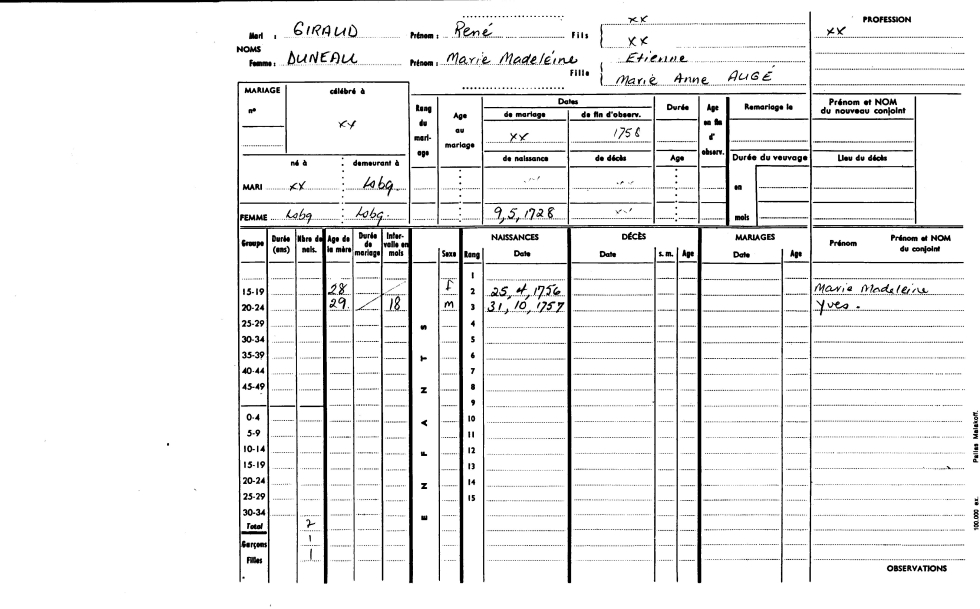 xx PROFESSION
Mari : GIRAUD Prénom : René Fils xx xx
NOMS
Femme : DUNEAU Prénom : Marie Madeleine Fille Etienne
Marie Anne AUGÉ
MARIAGE célébré à Rang du mari-age Age au mariage Dates Durée Age en fin d'observ. Remariage le Prénom et NOM du nouveau conjoint
n° xx de mariage de fin d'observ.
xx 1758
né à demeurant à de naissance de décès Age Durée du veuvage Lieu du décès
MARI xx Lobg. en
FEMME Lobg Lobg. 9, 5, 1728 mois
Groupe Durée (ans) Nbre de nais. Age de la mère Durée de mariage Inter-valle en mois Sexe Rang NAISSANCES Date DÉCÈS Date s. m. Age MARIAGES Date Age Prénom Prénom et NOM du conjoint
1
15-19 28 f 2 25, 4, 1756 Marie Madeleine
20-24 29. 18 m 3 31, 10, 1757 Yves.
25-29 S 4
30-34 5
35-39 T 6
40-44 7
45-49 N 8
9
0-4 A 10
5-9 11
10-14 F 12
15-19 13
20-24 N 14
25-29 15
30-34 E
Total 2
Garçons 1
Filles 1
OBSERVATIONS
100.000 ex. Pailles Malakoff.